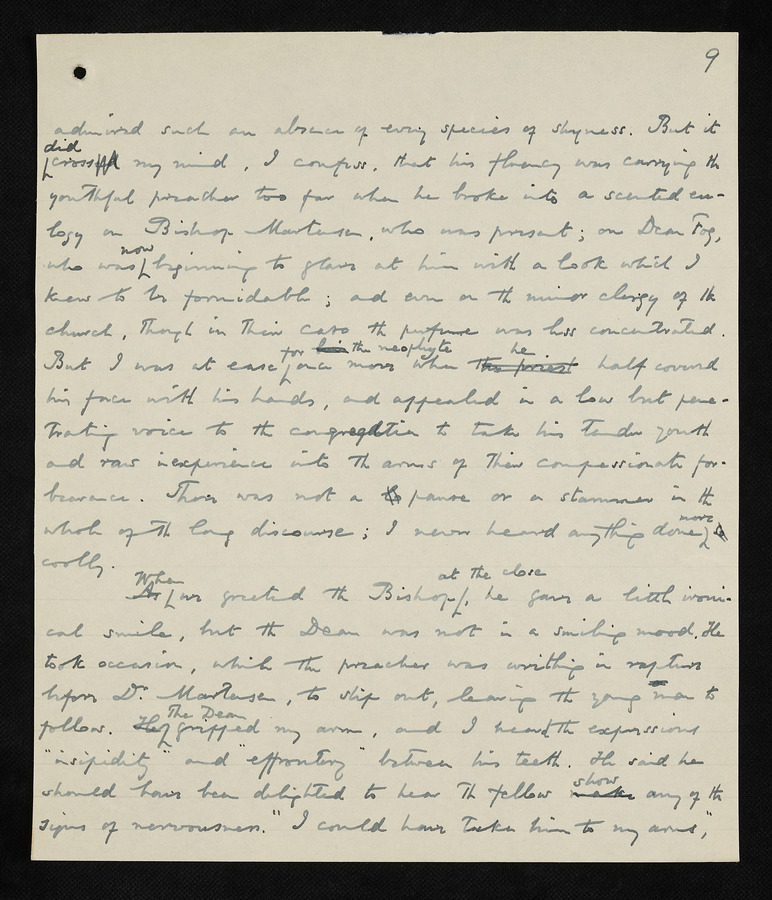 9
admired such an absence of every species of shyness. But it
did cross my mind, I confess, that his fluency was carrying the
youthful preacher too far when he broke into a scented eu-
logy on Bishop Martensen, who was present; on Dean Fog,
who was now beginning to glare at him with a look which I
knew to be formidable; and even on the minor clergy of the
church, though in their case the perfume was less concentrated.
But I was at ease for the neophyte once more when he half covered
his face with his hands, and appealed in a low but pene-
trating voice to the congregation to take his tender youth
and raw inexperience into the arms of their compassionate for-
bearance. There was not a pause or a stammer in the
whole of the long discourse; I never heard anything done more
coolly.
When we greeted the Bishop at the close, he gave a little ironi-
cal smile, but the Dean was not in a smiling mood. He
took occasion, while the preacher was writhing in rapture
before Dr. Martensen, to slip out, leaving the young man to
follow. The Dean gripped my arm, and I heard the expressions
"insipidity" and "effrontery" between his teeth. He said he
should have been delighted to hear the fellow show any of the
signs of nervousness. "I could have taken him to my arms,"